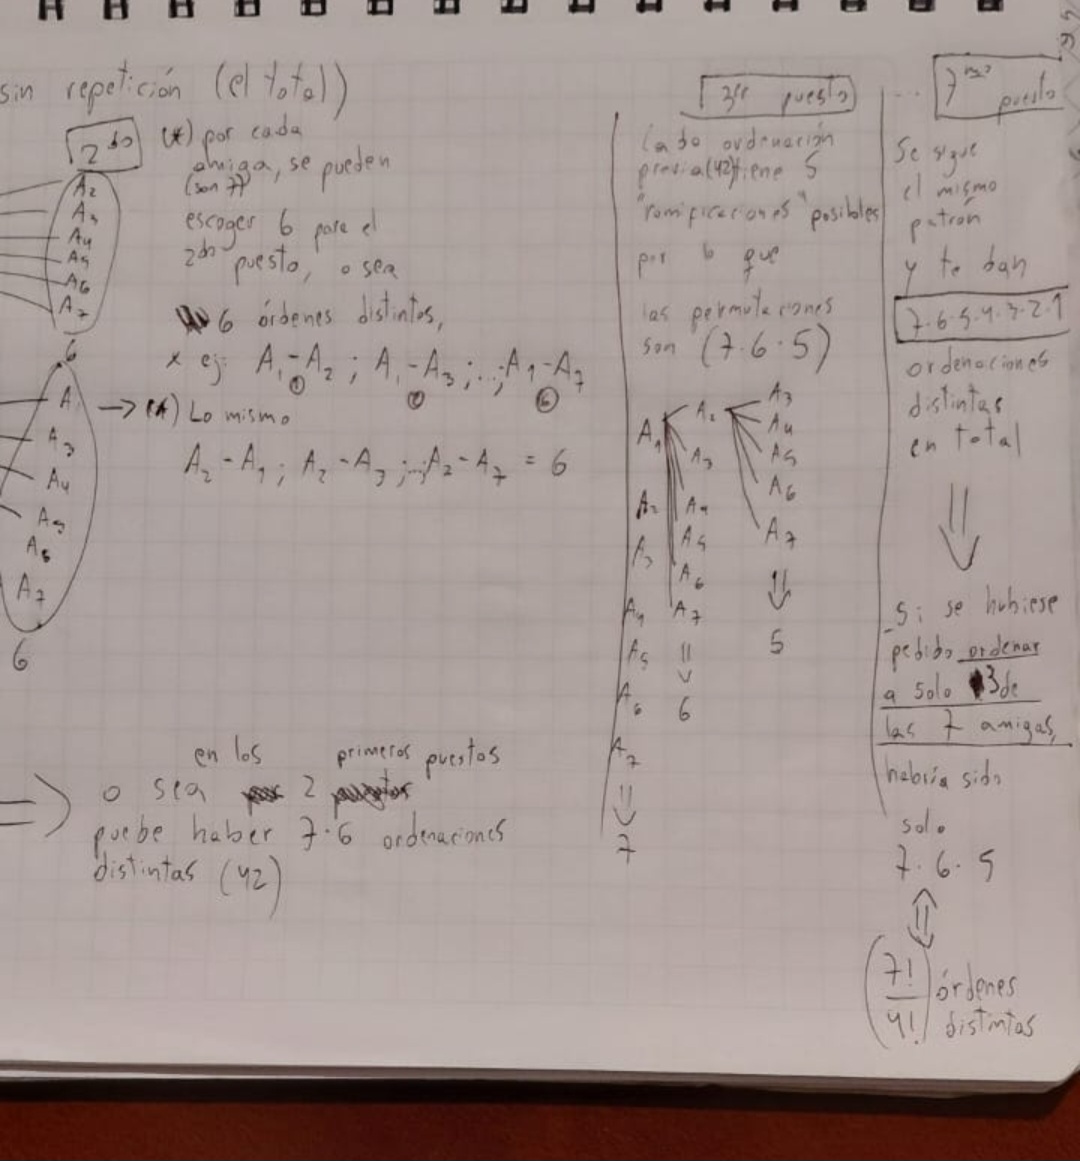 sin repetición (el total)
2do
A2
A3
A4
A5
A6
A7
6
(*) por cada
amiga, se pueden
(son 7)
escoger 6 para el
2do puesto, o sea
6 órdenes distintos,
x ej: A1-A2 ; A1-A3 ; ...; A1-A7
① ② ⑥
A1
A3
A4
A5
A6
A7
6
→ (*) Lo mismo
A2-A1 ; A2-A3 ;...; A2-A7 = 6
en los primeros puestos
o sea 2
puebe haber 7·6 ordenaciones
distintas (42)
3er puesto
Cada ordenación
previa (42) tiene 5
"ramificaciones" posibles
por lo que
las permutaciones
son (7·6·5)
A1
A2
A3
A4
A5
A6
A7
⇓
7
A2
A3
A4
A5
A6
A7
⇓
6
A3
A4
A5
A6
A7
⇓
5
... 7mo puesto
Se sigue
el mismo
patrón
y te dan
7·6·5·4·3·2·1
ordenaciones
distintas
en total
⇓
Si se hubiese
pedido ordenar
a solo 3 de
las 7 amigas,
habría sido
solo
7·6·5
⇕
(7!/4!) órdenes
distintos